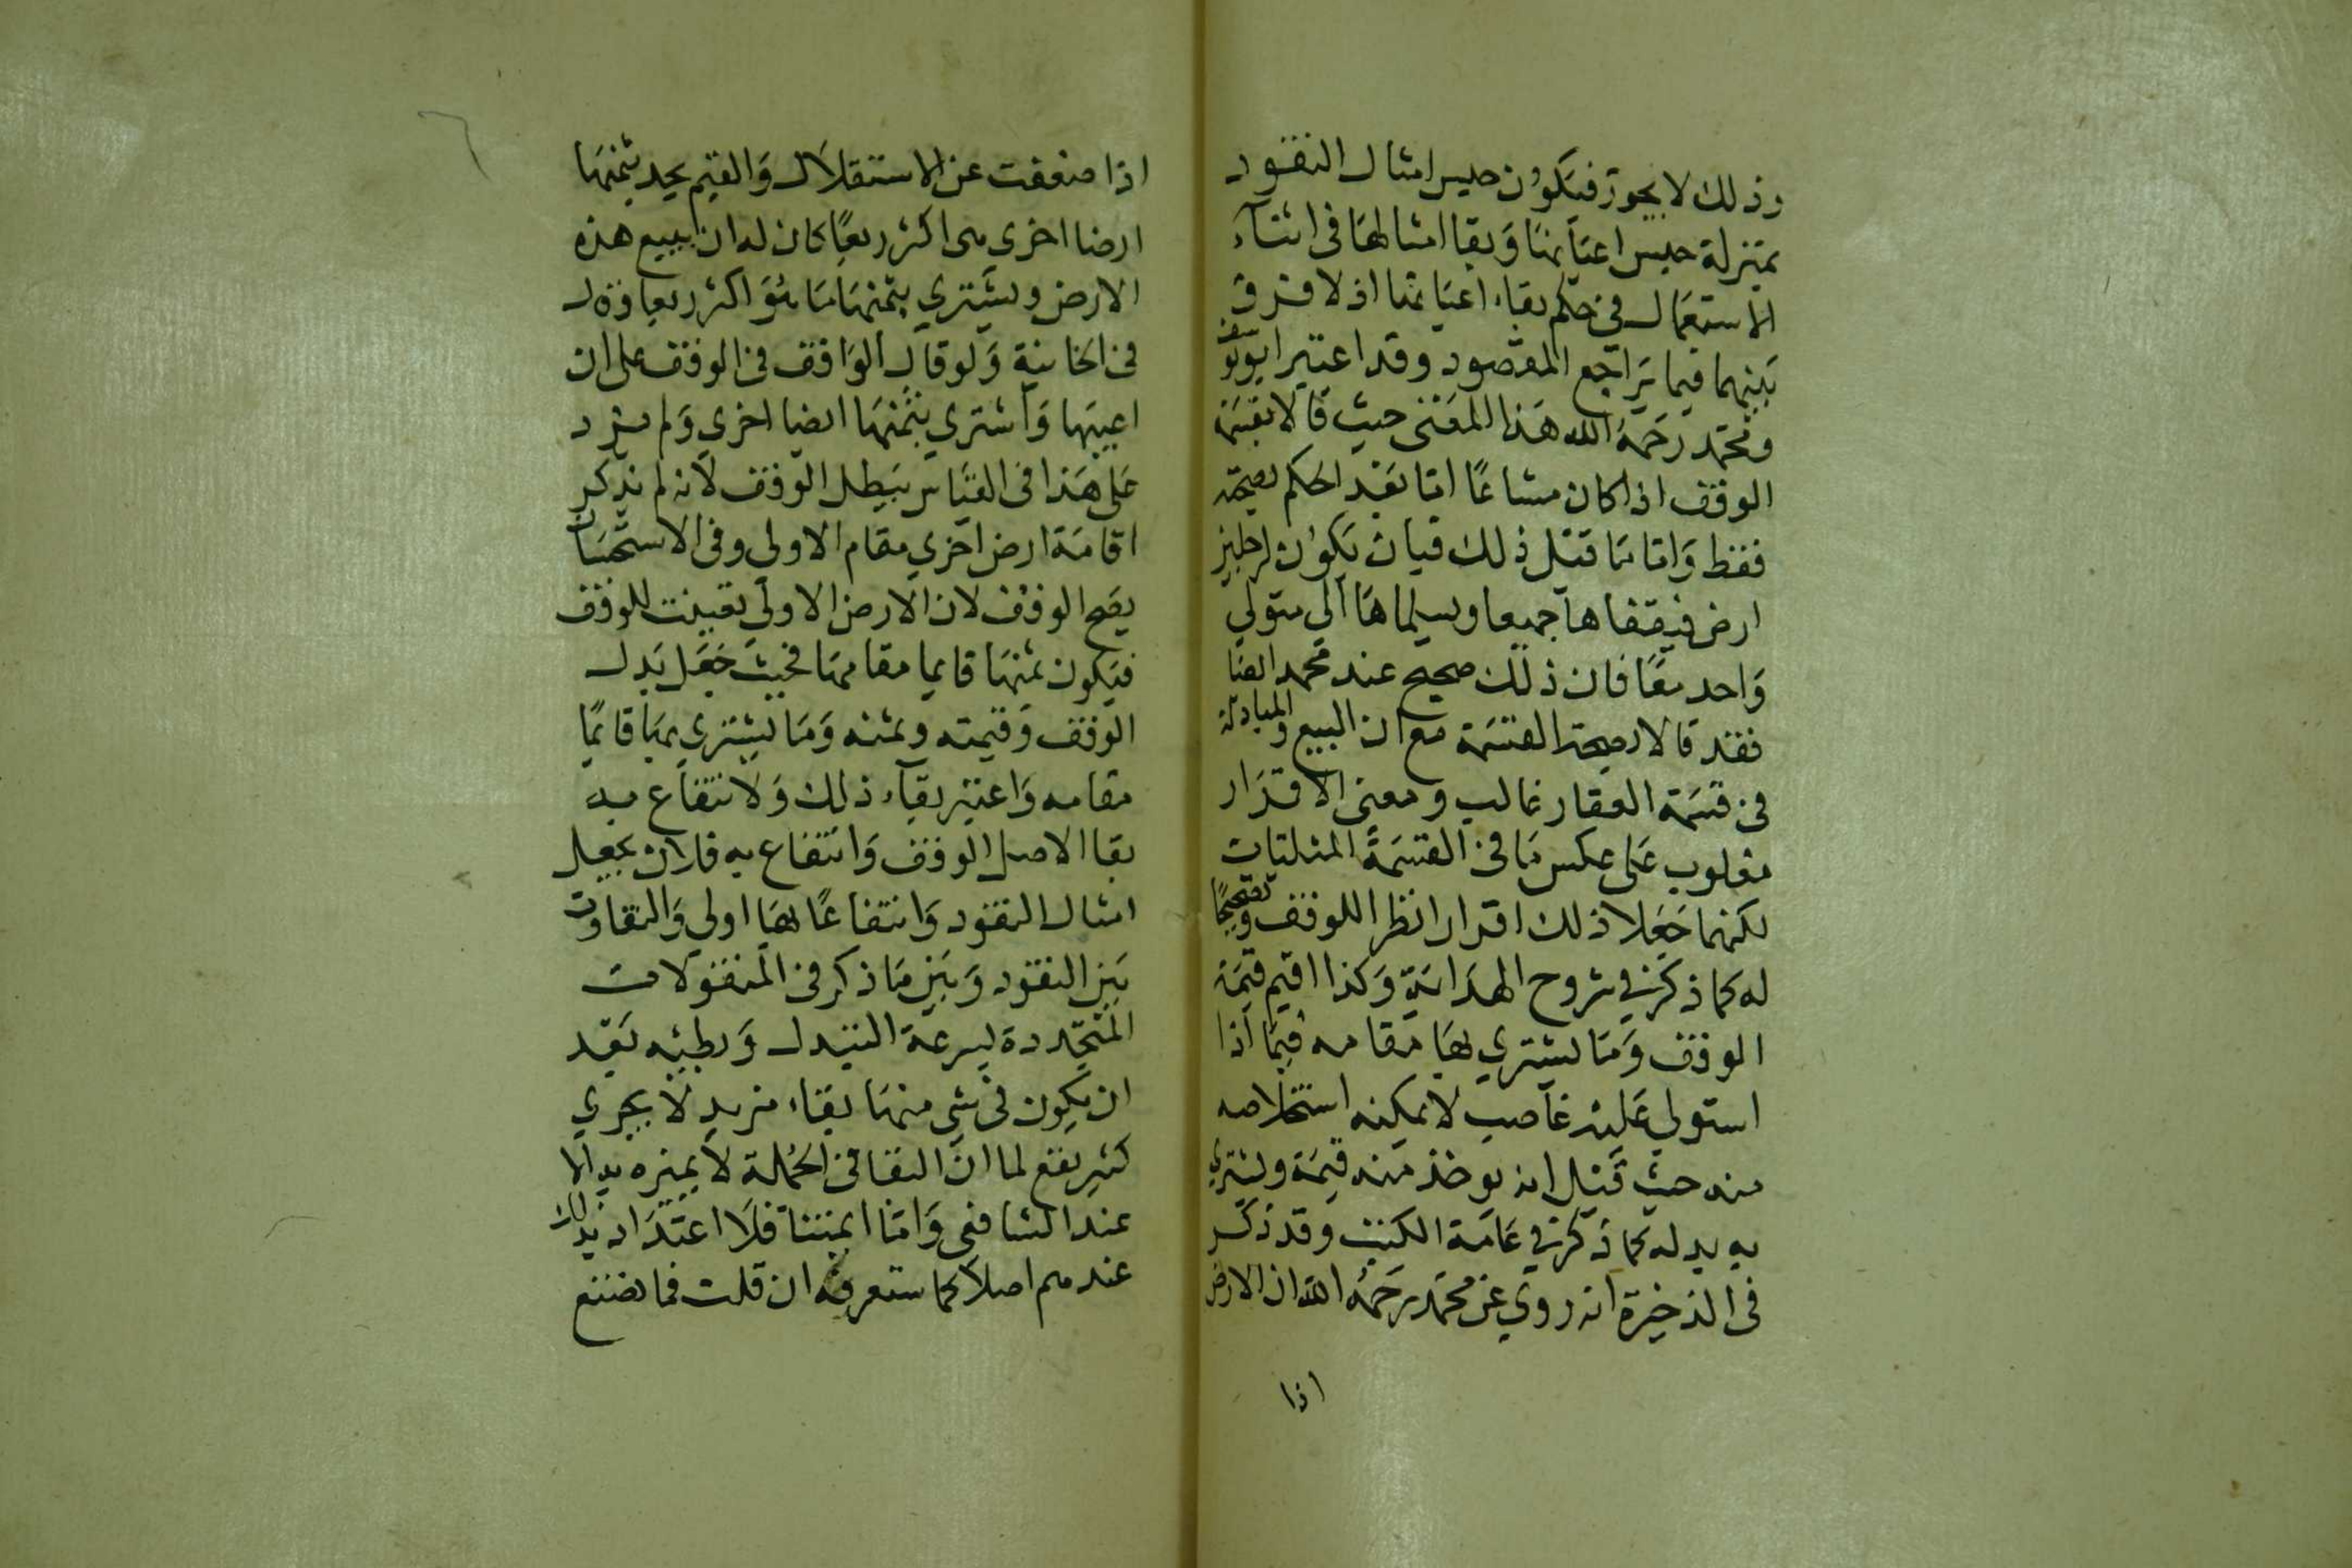 وذلك لا يجوز فيكون حبس امثال النقود
بمنزلة حبس اعيانها وبقا امثالها في اثناء
الاستعمال في حكم بقاء اعيانها اذ لا فرق
بينهما فيما يراجع المقصود وقد اعتبر ابويوسف
ومحمد رحمه الله هذا المعنى حيث قالا بقسمة
الوقف اذا كان مشاعا اما بعد الحكم بصحته
فقط واما ما قبل ذلك فبان يكون لرجلين
ارض فيقفاها جميعا ويسلماها الى متولي
واحد معا فان ذلك صحيح عند محمد ايضا
فقد قالا بصحة القسمة مع ان البيع والمبادلة
في قسمة العقار غالب ومعنى الاقرار
مغلوب على عكس ما في القسمة المثليات
لكنهما جعلا ذلك اقرارا نظرا للوقف وتصحيحا
له كما ذكر في شروح الهداية وكذا اقيم قيمة
الوقف وما يشتري بها مقامه فيما اذا
استولي عليه غاصب لا يمكنه استخلاصه
منه حيث قيل انه يوخذ منه قيمة ويشتري
به بدله كما ذكر في عامة الكتب وقد ذكر
في الذخيرة انه روي عن محمد رحمه الله ان الارض
اذا
اذا ضعفت عن الاستقلال والقيم يجد بثمنها
ارضا اخرى هى اكثر ريعا كان له ان يبيع هذه
الارض ويشتري بثمنها ما هو اكثر ريعا وقال
في الخانية ولو قال الواقف في الوقف على ان
ابيعها واشتري بثمنها ارضا اخري ولم يزد
على هذا في القياس يبطل الوقف لانه لم يذكر
اقامة ارض اخري مقام الاولى وفي الاستحسان
يصح الوقف لان الارض الاولى تعينت للوقف
فيكون ثمنها قايما مقامها فحيث جعل بدل
الوقف وقيمته وثمنه وما يشتري بها قائما
مقامه واعتبر بقاء ذلك ولانتفاع به
بقا الاصل الوقف وانتفاع به فلان يجعل
امثال النقود وانتفاعا بها اولى والتفاوت
بين النقود وبين ما ذكر في المنقولات
المتجددة بسرعة التبدل وبطيئه بعد
ان يكون في شي منها بقاء مزيد لا يجري
كثير نفع لما ان البقا في الجملة لا يميزه بدا الا
عند الشافعي واما ايمتنا فلا اعتداد بذلك
عندهم اصلا كما ستعرفه ان قلت فما تصنع